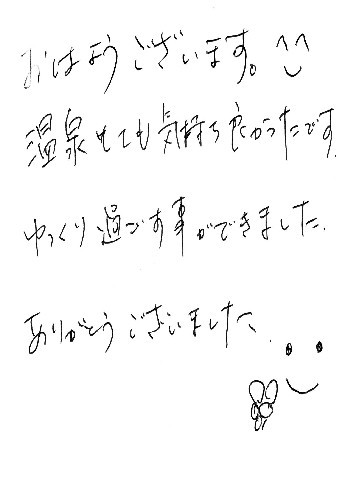 おはようございます。^^
温泉とても気持ち良かったです
ゆっくり過ごす事ができました.
ありがとうございました.